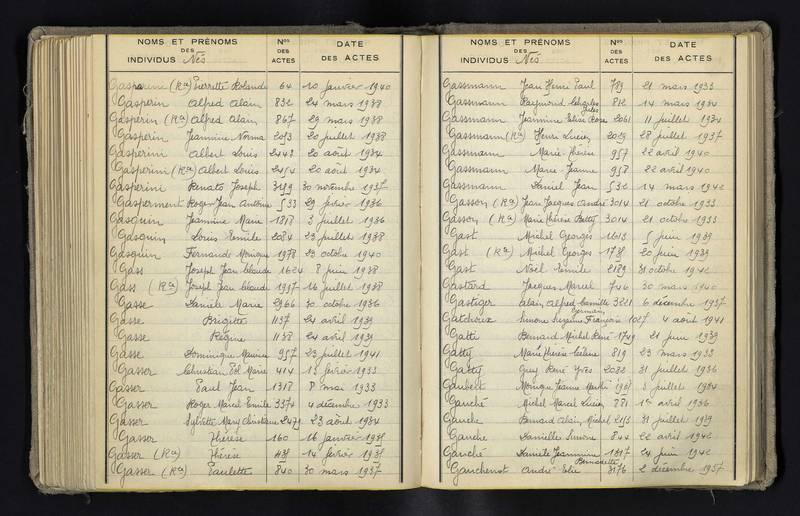 NOMS ET PRÉNOMS
DES
INDIVIDUS Nés
Nos
DES
ACTES
DATE
DES ACTES
Gasparini (Ra) Pierrette Rolande 64 10 janvier 1940
Gasperin Alfred Alain 832 24 mars 1938
Gasperin (Ra) Alfred Alain 867 29 mars 1938
Gasperin Jeannine Norma 2093 20 juillet 1938
Gasperini Albert Louis 2443 20 août 1934
Gasperini (Ra) Albert Louis 2454 20 août 1934
Gasperini Renato Joseph 3199 30 novembre 1937
Gasperment Roger Jean Antoine 533 29 février 1936
Gasquin Jeannine Marie 1818 3 juillet 1936
Gasquin Louis Emile 2084 23 juillet 1938
Gasquin Fernande Monique 1978 23 octobre 1940
Gass Joseph Jean Claude 1624 8 juin 1938
Gass (Ra) Joseph Jean Claude 1937 16 juillet 1938
Gasse Danièle Marie 2966 30 octobre 1936
Gasse Brigitte 1137 24 avril 1939
Gasse Régine 1138 24 avril 1939
Gasse Dominique Maurice 957 23 juillet 1941
Gasser Christian 414 13 février 1933
Gasser Paul Jean 1318 8 mai 1933
Gasser Roger Marcel Emile 3374 4 décembre 1933
Gasser Sylvette Mary Christiane 2479 23 août 1934
Gasser Thérèse 160 16 janvier 1935
Gasser (Ra) Thérèse 14 février 1935
Gasser (Ra) Paulette 840 30 mars 1937
NOMS ET PRÉNOMS
DES
INDIVIDUS Nés
Nos
DES
ACTES
DATE
DES ACTES
Gassmann Jean Henri Paul 789 21 mars 1933
Gassmann Raymond Charles Jules 812 14 mars 1934
Gassmann Jeannine Elise Rose 2061 11 juillet 1934
Gassmann (Ra) Henri Lucien 2029 28 juillet 1937
Gassmann Marie Thérèse 957 22 avril 1940
Gassmann Marie Jeanne 958 22 avril 1940
Gassmann Daniel Jean 532 14 mars 1942
Gasson (Ra) Jean Jacques André 3014 21 octobre 1933
Gasson (Ra) Marie Thérèse Betty 3014 21 octobre 1933
Gast Michel Georges 1613 5 juin 1939
Gast (Ra) Michel Georges 1738 20 juin 1939
Gast Noël Emile 2189 31 octobre 1942
Gastard Jacques Marcel 746 30 mars 1940
Gastiger Alain Alfred Camille 3221 6 décembre 1937
Gatchoux Simone Suzanne Germain François 1027 4 août 1941
Gatti Bernard Michel René 1749 21 juin 1939
Gatty Marie Thérèse Hélène 819 23 mars 1933
Gatty Guy René Yves 2082 31 juillet 1936
Gaubert Monique Jeanne 1967 3 juillet 1934
Gauché Michel Marcel Lucien 881 1er avril 1936
Gauche Bernard Alain Michel 2153 31 juillet 1939
Gauche Danielle Simone 844 22 avril 1942
Gauché Danièle Jeannine Bernadette 1317 24 juin 1942
Gauchenot André Elie 3176 2 décembre 1937